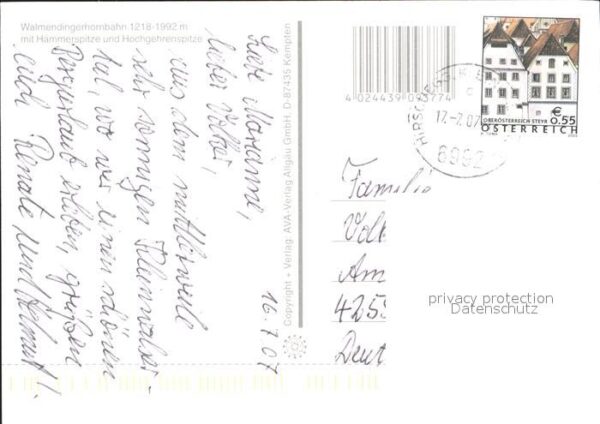 Walmendingerhornbahn 1218-1992 m
mit Hammerspitze und Hochgehrenspitze
16.7.07
Liebe Marianne,
lieber Volker,
aus dem mittlerweile
sehr sonnigen Kleinwalser-
tal, wo wir einen schönen
Bergurlaub erleben, grüßen
euch Renate und Helmut!
Copyright + Verlag: AVA-Verlag Allgäu GmbH, D-87435 Kempten
4 024439 093774
HIRSCHEGG, K
17.-7.07
6992
OBERÖSTERREICH STEYR
€
0.55
ÖSTERREICH
Familie
Vol
Am
425
Deut
privacy protection
Datenschutz